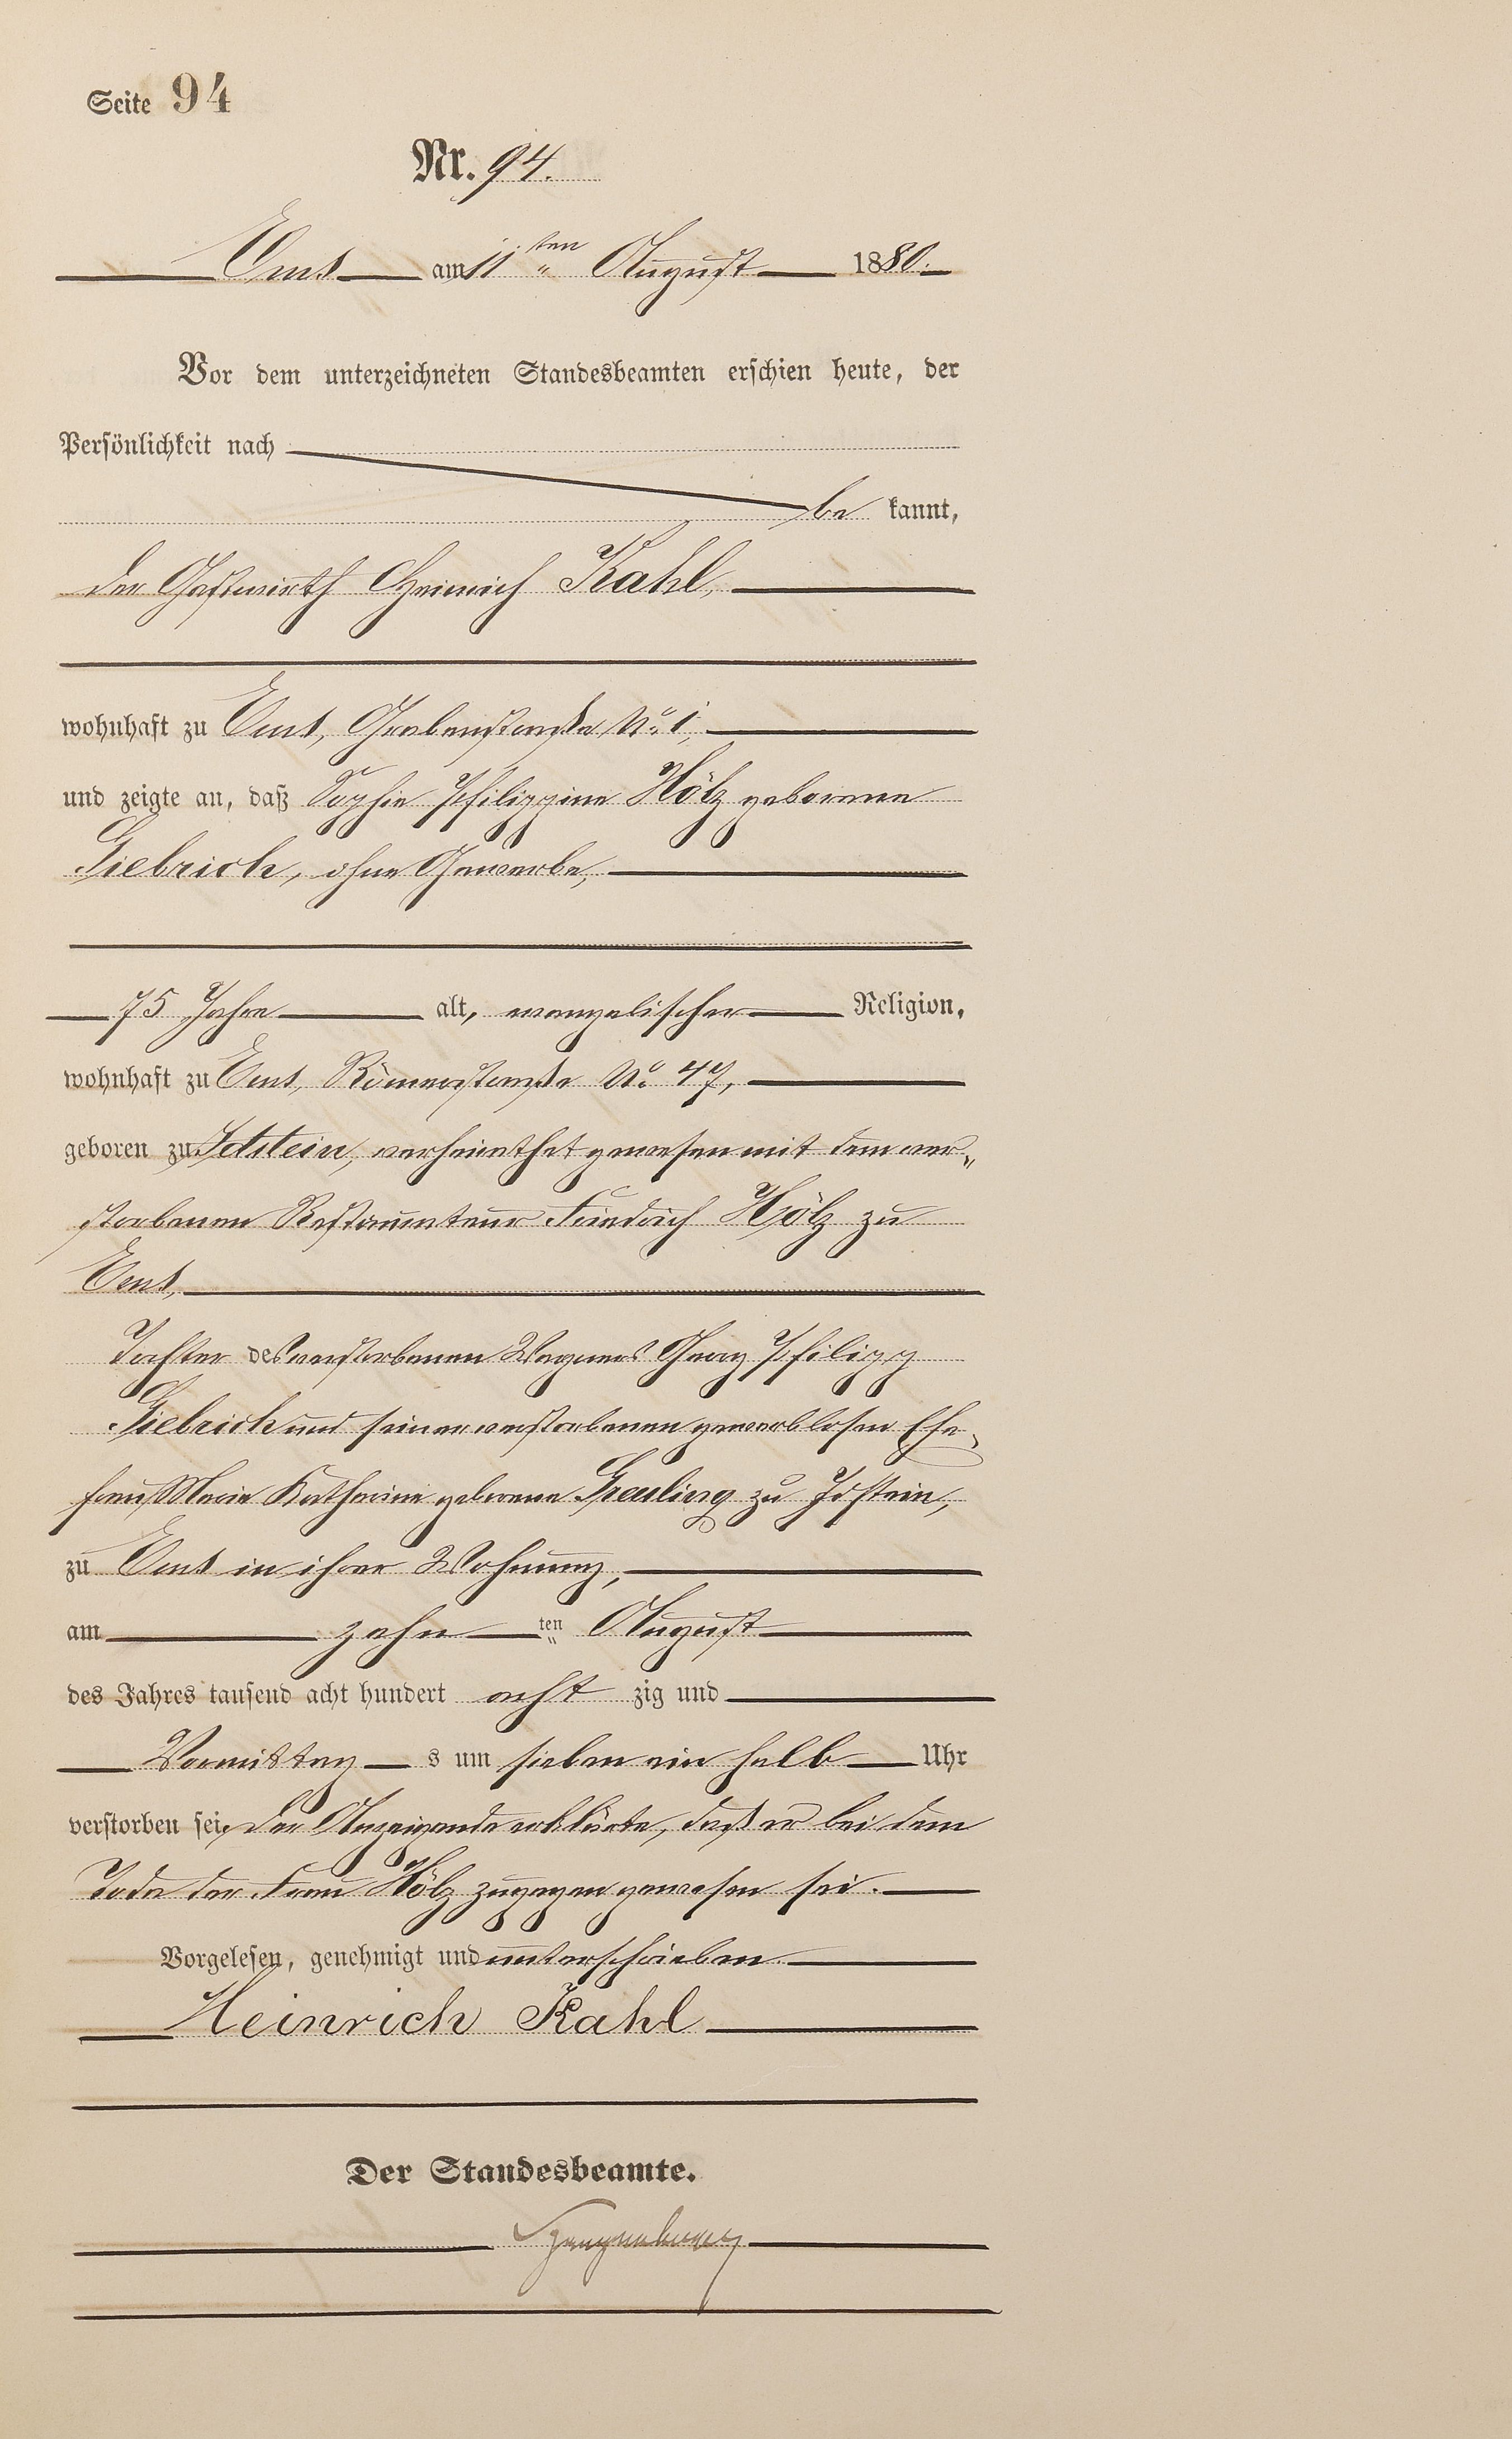 Seite 94
Nr. 94.
Ems am 11ten August 1880.
Vor dem unterzeichneten Standesbeamten erschien heute, der
Persönlichkeit nach
be kannt,
der Gastwirth Heinrich Kahl,
wohnhaft zu Ems, Grabenstraße No. 1,
und zeigte an, daß Sophie Philippine Hölz geborene
Giebrich, ohne Gewerbe,
75 Jahre alt, evangelischer Religion,
wohnhaft zu Ems, Römerstraße No. 47,
geboren zu Idstein, verheirathet gewesen mit dem ver„
storbenen Restaurateur Friedrich Hölz zu
Ems,
Tochter des verstorbenen Wagners Georg Philipp
Giebrich und seiner verstorbenen gewerblosen Ehe„
frau Marie Katharine geborene Greuling zu Idstein,
zu Ems in ihrer Wohnung,
am zehn ten August
des Jahres tausend acht hundert acht zig und
Vormittag s um sieben ein halb Uhr
verstorben sei, der Anzeigende erklärte, daß er bei dem
Tode der Frau Hölz zugegen gewesen sei.
Vorgelesen, genehmigt und unterschrieben
Heinrich Kahl
Der Standesbeamte.